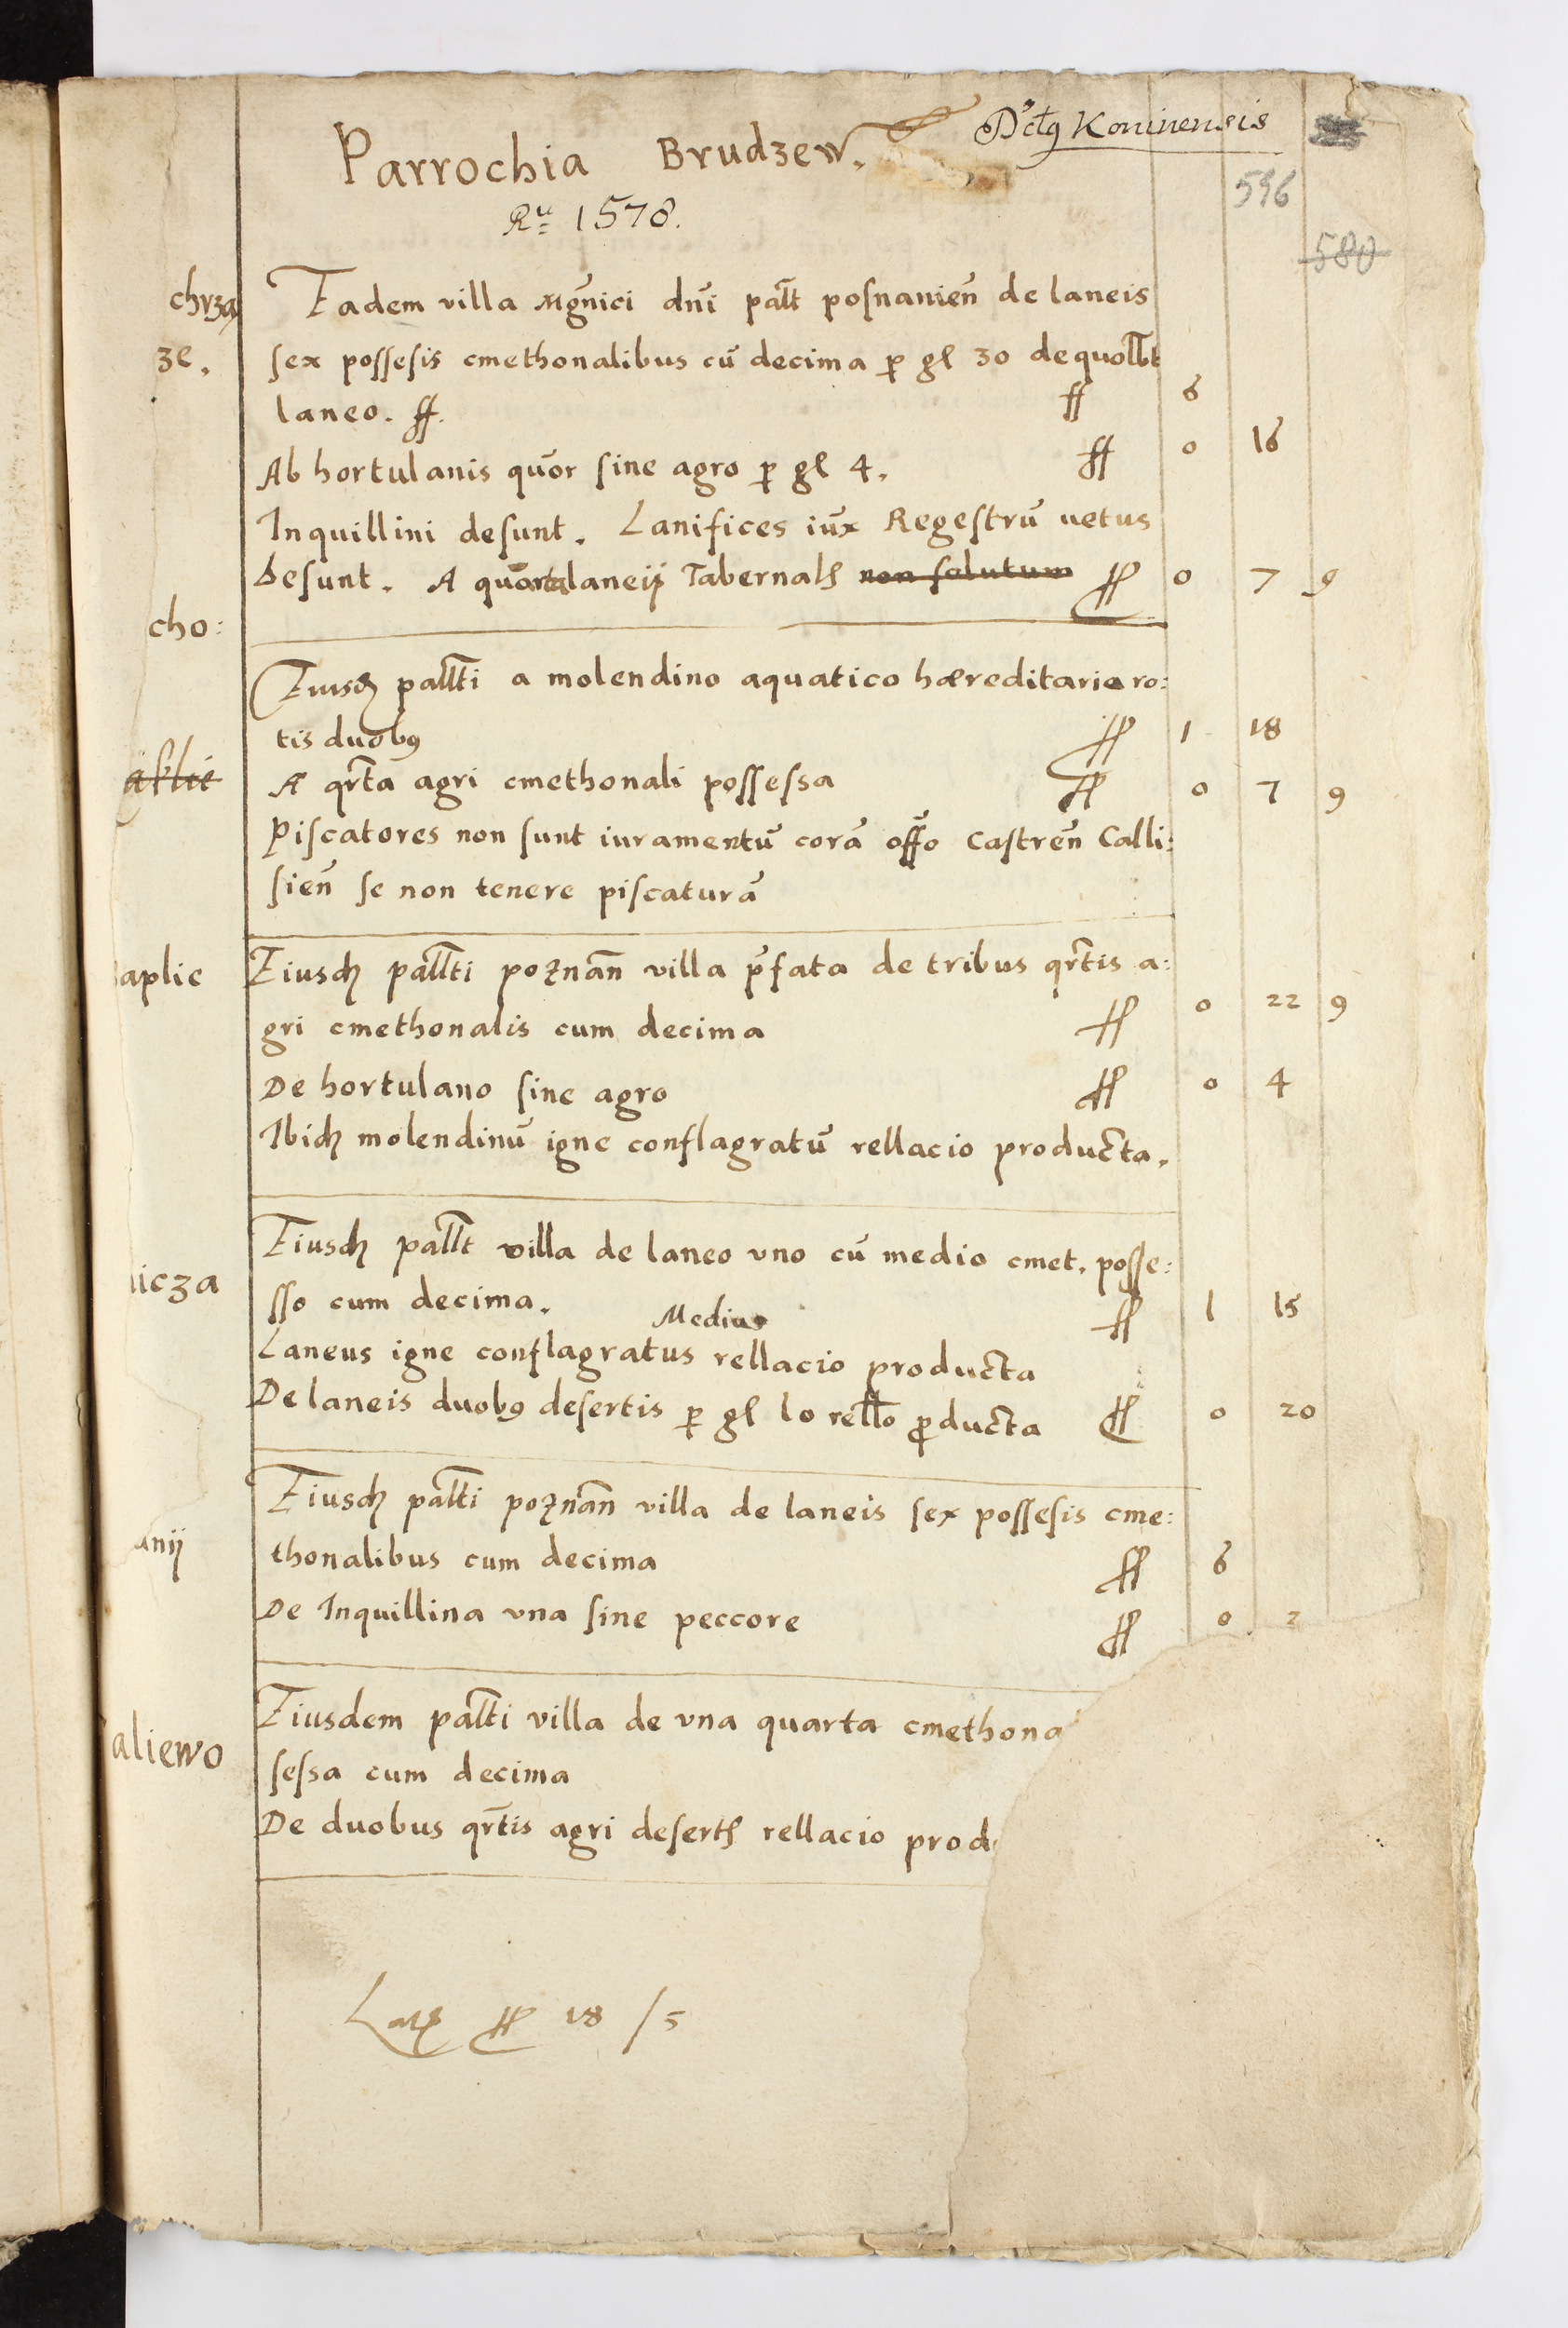 Parrochia Brudzew.
Dctus Koninensis
Rᵘ 1578.
596
580
chrzą
ze.
Eadem villa Mgnici dni pallt posnanien de laneis
sex possesis cmethonalibus cū decima p gl 30 de quollbt
laneo. ff. ff 6
Ab hortulanis quōr sine agro p gl 4. ff 0 16
Inquillini desunt. Lanifices iux Regestrū uetus
desunt. A quarta laneij Tabernals non solutum ff 0 7 9
cho:
Eiusd pallti a molendino aquatico hæreditario ro:
tis duobꝯ ff 1 18
A qrta agri cmethonali possessa ff 0 7 9
Piscatores non sunt iuramentū corā offo Castreñ Calli:
sieñ se non tenere piscaturā
aplic
Eiusdꝫ pallti pozñan villa p̄fata de tribus qrtis a:
gri cmethonalis cum decima ff 0 22 9
De hortulano sine agro ff 0 4
Ibidꝫ molendinū igne conflagratū rellacio producta.
icza
Eiusdꝫ pallt villa de laneo vno cū medio cmet. posse:
sso cum decima. ff 1 15
Medius
Laneus igne conflagratus rellacio producta
De laneis duobꝯ desertis p gl 10 rello producta ff 0 20
anij
Eiusdꝫ pallti pozñan villa de laneis sex possesis cme:
thonalibus cum decima ff 6
De Inquillina vna sine peccore ff 0 2
aliewo
Eiusdem pallti villa de vna quarta cmethona
sessa cum decima
De duobus qrtis agri deserts rellacio prod
Latꝯ ff 18 /5